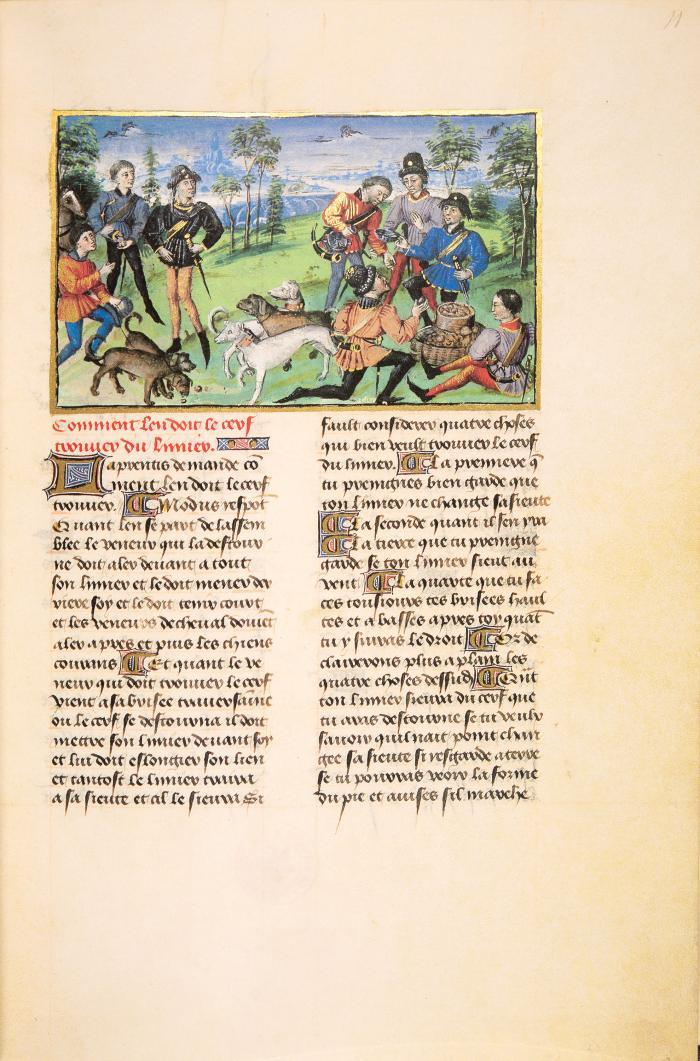 11
Comment len doit le cerf
trouver du limier.
Laprentis demande cō
ment len doit le cerf
trouver. Modus respōt
Quant len se part de lassem
blee le veneur qui la destour
ne doit aler devant a tout
son limier et le doit mener der
riere soy et le doit tenir court
et les veneurs de cheval doivēt
aler apres et puis les chiens
courans Et quant le ve
neur qui doit trouver le cerf
vient a sa brisee
ou le cerf se destourna il doit
mettre son limier devant soy
et lui doit eslongier son lien
et tantost le limier
a sa sieute et cil le sieura Si
fault considerer quatre choses
qui bien veult trouver le cerf
du limier. La premiere q̄
tu premgnes bien garde que
ton limier ne change sa sieute
La seconde quant il sen
La tierce que tu premgne
garde se ton limier sieut au
vent La quarte que tu fa
ces tousiours tes brisees haul
tes et abasses apres toy quāt
tu y suivras le droit Or de
clairerons plus aplain les
quatre choses dessusd̄
ton limier sieura du cerf que
tu avras destourne se tu veulx
savoir quil nait point chan
gee sa sieute si resgarde a terre
se tu pourras veoir la forme
du pie et avises sil marche